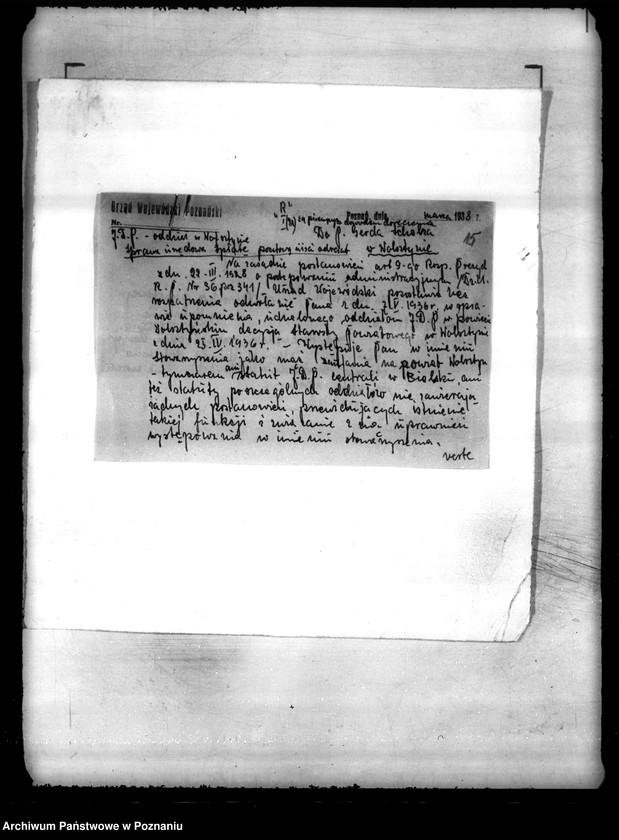 Urząd Wojewódzki Poznański
"R"
Poznań, dnia marca 1938 r.
Nr.
I/24 za pisemnym dowodem doręczenia
J.D.P. - oddział w Wolsztynie
Do P. Gerda
w Wolsztynie
15
Sprawa urzędowa opłatę pocztową uiści adresat
Na zasadzie postanowień art 9-go Rozp. Prezyd
z dn. 22-III. 1928 o postępowaniu administracyjnym /Dz.U.
R.P. Nr 36 poz 341/ Urząd Wojewódzki pozostawia bez
rozpatrzenia odwołanie Pana z dn. 7.V. 1936r. w spra-
wie upomnienia, udzielonego oddziałom J.D.P w powiecie
Wolsztyńskim decyzją Starosty Powiatowego w Wolsztynie
z dnia 25.IV. 1936r. - Występuje Pan w imieniu
Stowarzyszenia jako mąż zaufania na powiat Wolsztyn
- tymczasem ani statut J.D.P. centrali w Bielsku, ani
też statuty poszczególnych oddziałów nie zawierają
żadnych postanowień, przewidujących istnienie
takiej funkcji i związanie z nią uprawnień
występowania w imieniu stowarzyszenia.
verte
Archiwum Państwowe w Poznaniu